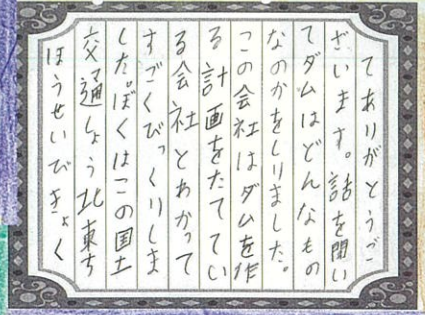 てありがとうご
ざいます。話を聞い
てダムはどんなもの
なのかをしりました。
この会社はダムを作
る計画をたててい
る会社とわかって
すごくびっくりしま
した。ぼくはこの国土
交通しょう北東ち
ほうせいびきょく